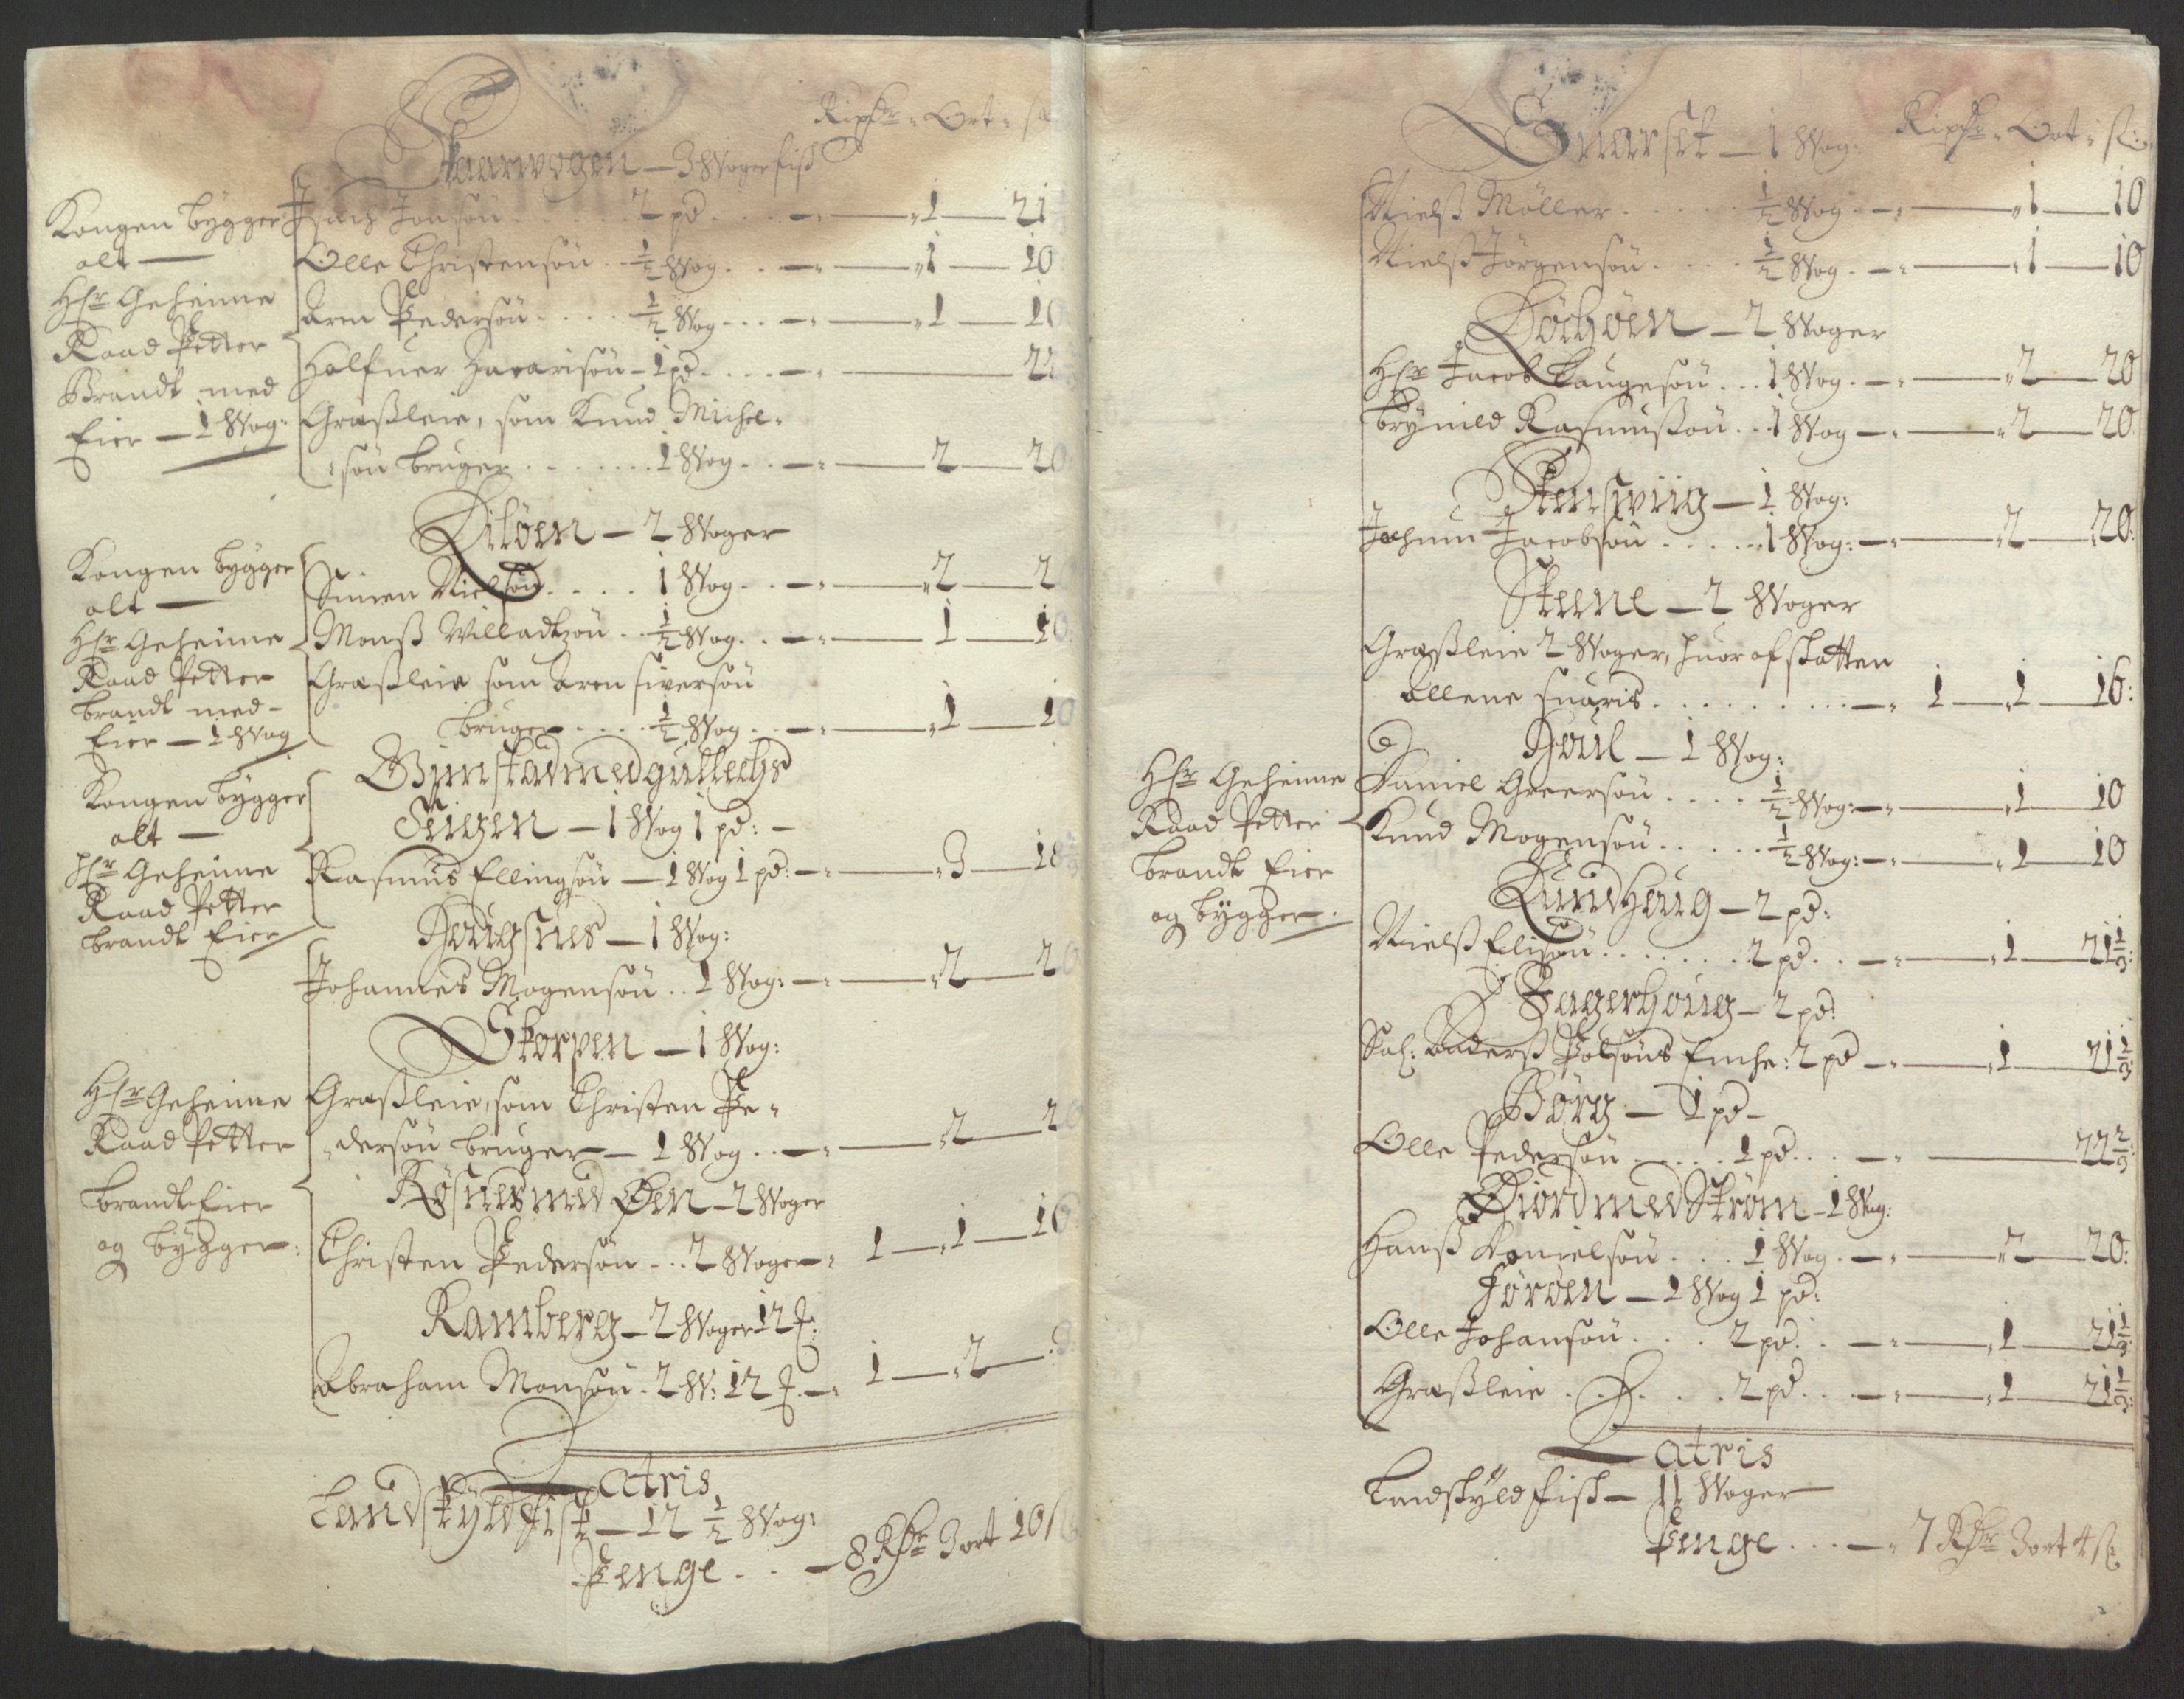 Ripdr - Ort - s
Skaarvogen — 3 Woger fisk
Kongen bÿgger
alt —
Hr Geheime
Raad Petter
Brandt med
Eier — 1 Wog:
Isach Jonsøn . . . . 2 pd . . . — 1 — 21
Olle Christensøn . . ½ Wog . . — 1 — 10
Aren Pedersøn . . . . ½ Wog . . . — 1 — 10
Halfuer Zacarisøn — 1 pd . . . . — 22
Græsßleie, som Knud Michel-
søn bruger . . . . . . . 1 Wog . . — 2 — 20
Diløen — 2 Woger
Kongen bÿgger
alt —
Hr Geheime
Raad Petter
brandt med
Eier — 1 Wog
Simen Nielsøn . . . . 1 Wog . . — 2 — 2
Monß Willadtzøn . . ½ Wog . . — 1 — 10
Græsßleie som Aren siversøn
bruger . . . . ½ Wog . . — 1 — 10
Gimstad med gullechs
Eiigen — 1 Wog 1 pd: —
Kongen bÿgger
alt —
Hr Geheime
Raad Petter
brandt Eier
Rasmus Ellingsøn — 1 Wog 1 pd: — 3 — 18
Hougsnes — 1 Wog:
Johannes Mogensøn . . 1 Wog: — 2 — 20
Skorpen — 1 Wog:
Hr Geheime
Raad Petter
brandt Eier
og bÿgger:
Græsßleie, som Christen Pe-
dersøn bruger — 1 Wog . . — 2 — 20
Røsnes med Øen — 2 Woger
Christen Pedersøn . . . 2 Woger — 1 — 1 — 16
Ramberg — 2 Woger 12 ℔:
Abraham Monsøn . 2 W: 12 ℔ — 1 — 2 —
Latris
Landskÿld fisk — 12 ½ Wog:
Penge . . . — 8 Rdr 3 ort 10 s
Snarset — 1 Wog: Ripdr - Ort - sk:
Nielß Møller . . . . . ½ Wog . — 1 — 10
Nielß Jørgensøn . . . . ½ Wog . — 1 — 10
Dochøen — 2 Woger
Hr Jacob Laugesøn . . . 1 Wog . — 2 — 20
Brÿnild Rasmussøn . . 1 Wog — 2 — 20
Stensviig — 1 Wog:
Jochum Jacobsøn . . . . . 1 Wog: — 2 — 20:
Steene — 2 Woger
Græsßleie 2 Woger, huor af skatten
allene suaris . . . . . . . . . — 1 — 1 — 16:
Houl — 1 Wog:
Hr Geheime
Raad Petter
brandt Eier
og bÿgger.
Daniel Greersøn . . . . ½ Wog: — 1 — 10
Knud Mogensøn . . . . . ½ Wog: — 1 — 10
Lundhoug — 2 pd:
Nielß Elisøn . . . . . . . 2 pd . . — 1 — 21⅓:
Fagerhoug — 2 pd:
Sal: Anderß Polsøns Encke: 2 pd — 1 — 21⅓
Borg — 1 pd —
Olle Pedersøn . . . . . 1 pd . . . — 22⅔:
Øiord med Strøm — 1 Wog:
Hanß Danielsøn . . . 1 Wog . — 2 — 20:
Førøen — 1 Wog 1 pd:
Olle Johansøn . . . 2 pd . . — 1 — 21⅓:
Græsßleie . . . . . . 2 pd . . . — 1 — 21⅓:
Latris
Landskÿld fisk — 11 Woger
Penge . . . — 7 Rdr 3 ort 4 sk